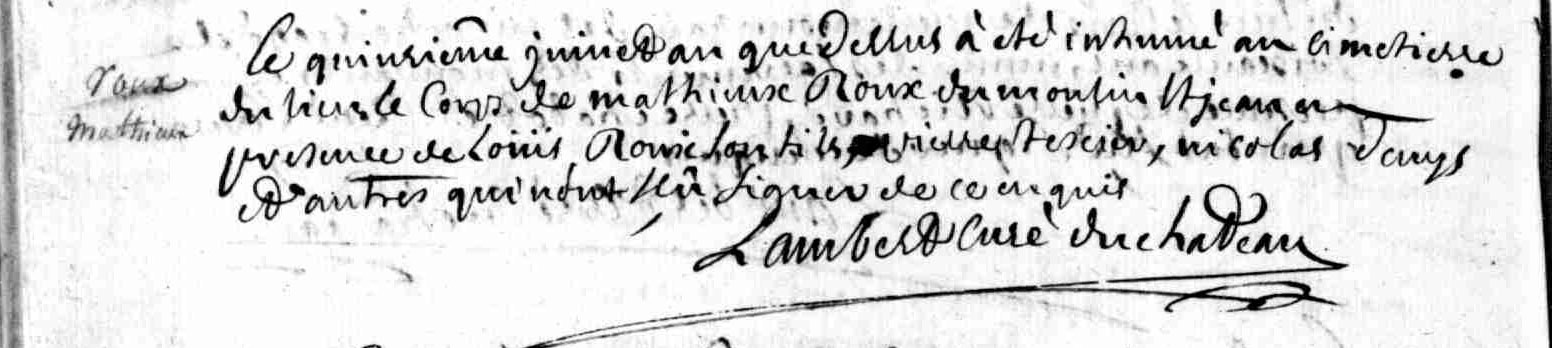 Roux
Mathieux
le quinsieme juinet an que dessus à eté inhumé au cimetierre
du lieu le Corps de mathieux Roux du moulin st jean en
presence de Loüis Roux son fils, pierre texier, nicolas Denys
et d'autres qui n'ont sçû signer de ce enquis
Lambert Curé du chateau